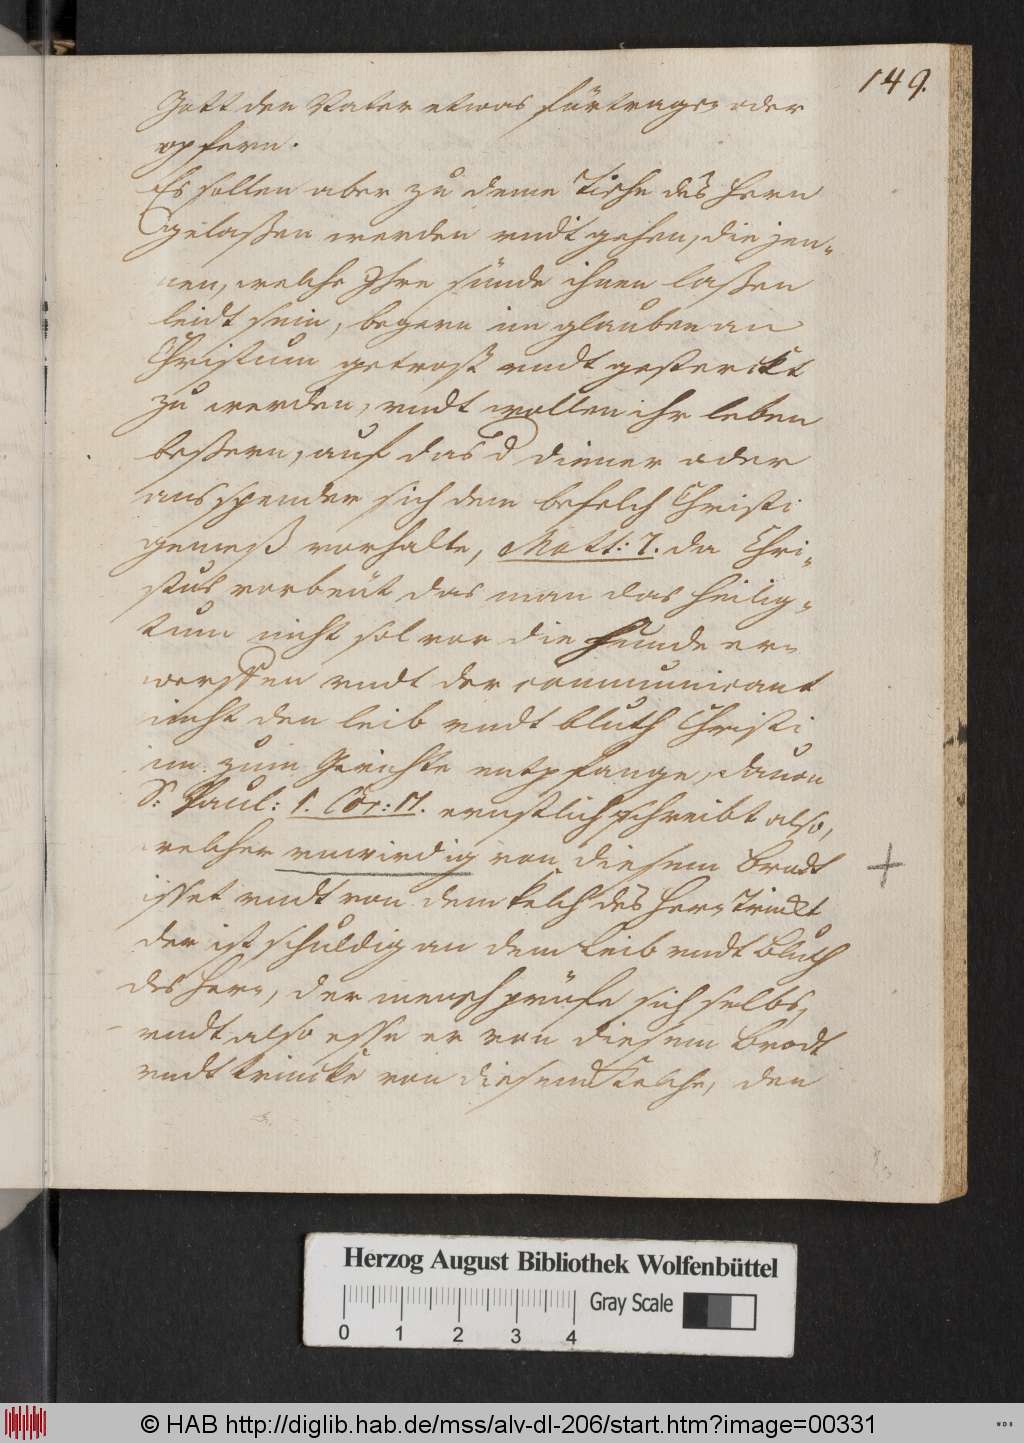 149.
Gott den Vater etwas fürtragen oder
opfern.
Es sollen aber zu deme Tische des Herrn
gelaßen werden undt gehen, die jen-
nen, welche Ihre sünde ihnen laßen
leidt sein, begern im glauben an
Christum getrost undt gesterckt
zu werden, undt wollen ihr leben
beßern, auf das d diener oder
ausspender sich dem befelch Christi
gemeß vorhalte, Matt: 7. da Chri-
stus vorbeüt das man das heilig-
tum nicht sol vor die Hunde er-
werffen undt der communicant
nicht den leib undt bluth Christi
im zum Gerichte entpfange, davon
S: Paul: 1. Cor: 11. ernstlich schreibt also,
welcher unwirdig von diesem Brodt
isset undt von dem Kelch des Hern Trinckt
der ist schuldig an dem Leib undt Bluth
des Hern, der mensch prüfe sich selbs,
undt also esse er von diesem Brodt
undt trincke von diesem Kelche, den
Herzog August Bibliothek Wolfenbüttel
Gray Scale
0 1 2 3 4
© HAB http://diglib.hab.de/mss/alv-dl-206/start.htm?image=00331